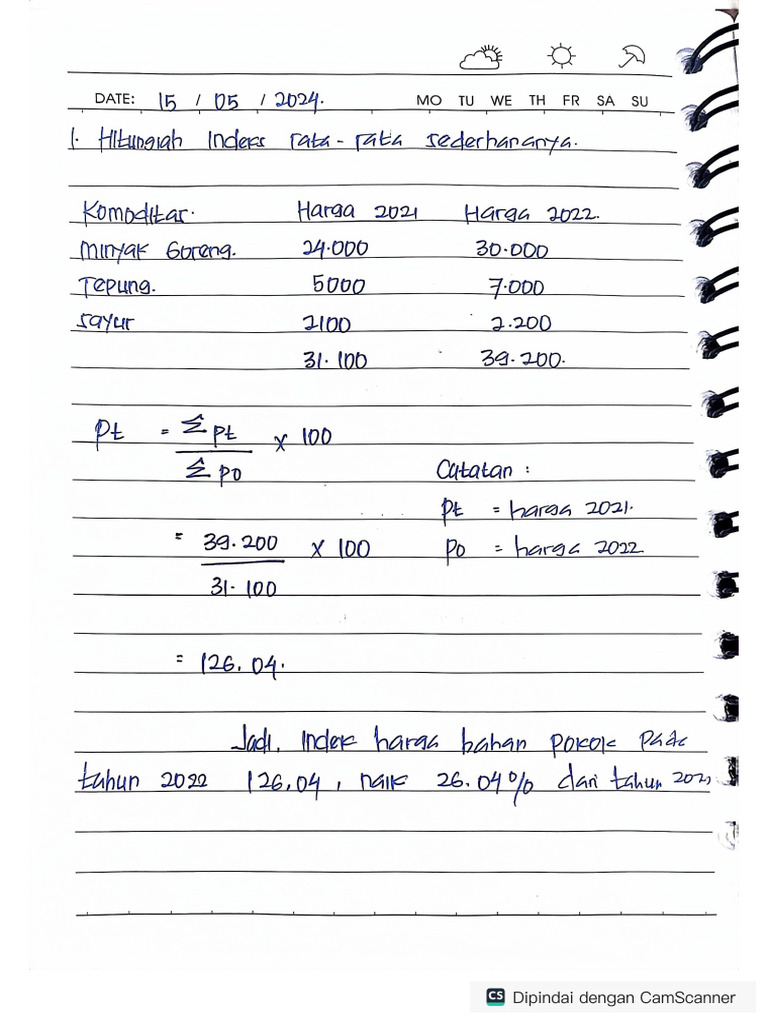 DATE: 15 / 05 / 2024. MO TU WE TH FR SA SU
1. Hitunglah Indeks rata-rata sederhananya.
Komoditas. Harga 2021 Harga 2022.
Minyak Goreng. 24.000 30.000
Tepung. 5000 7.000
Sayur 2100 2.200
31.100 39.200.
Pt = Σ pt / Σ po x 100
Catatan :
pt = harga 2021.
= 39.200 / 31.100 x 100
po = harga 2022
= 126,04.
Jadi, Indek harga bahan pokok pada
tahun 2022 126,04, naik 26.04% dari tahun 2021
CS Dipindai dengan CamScanner